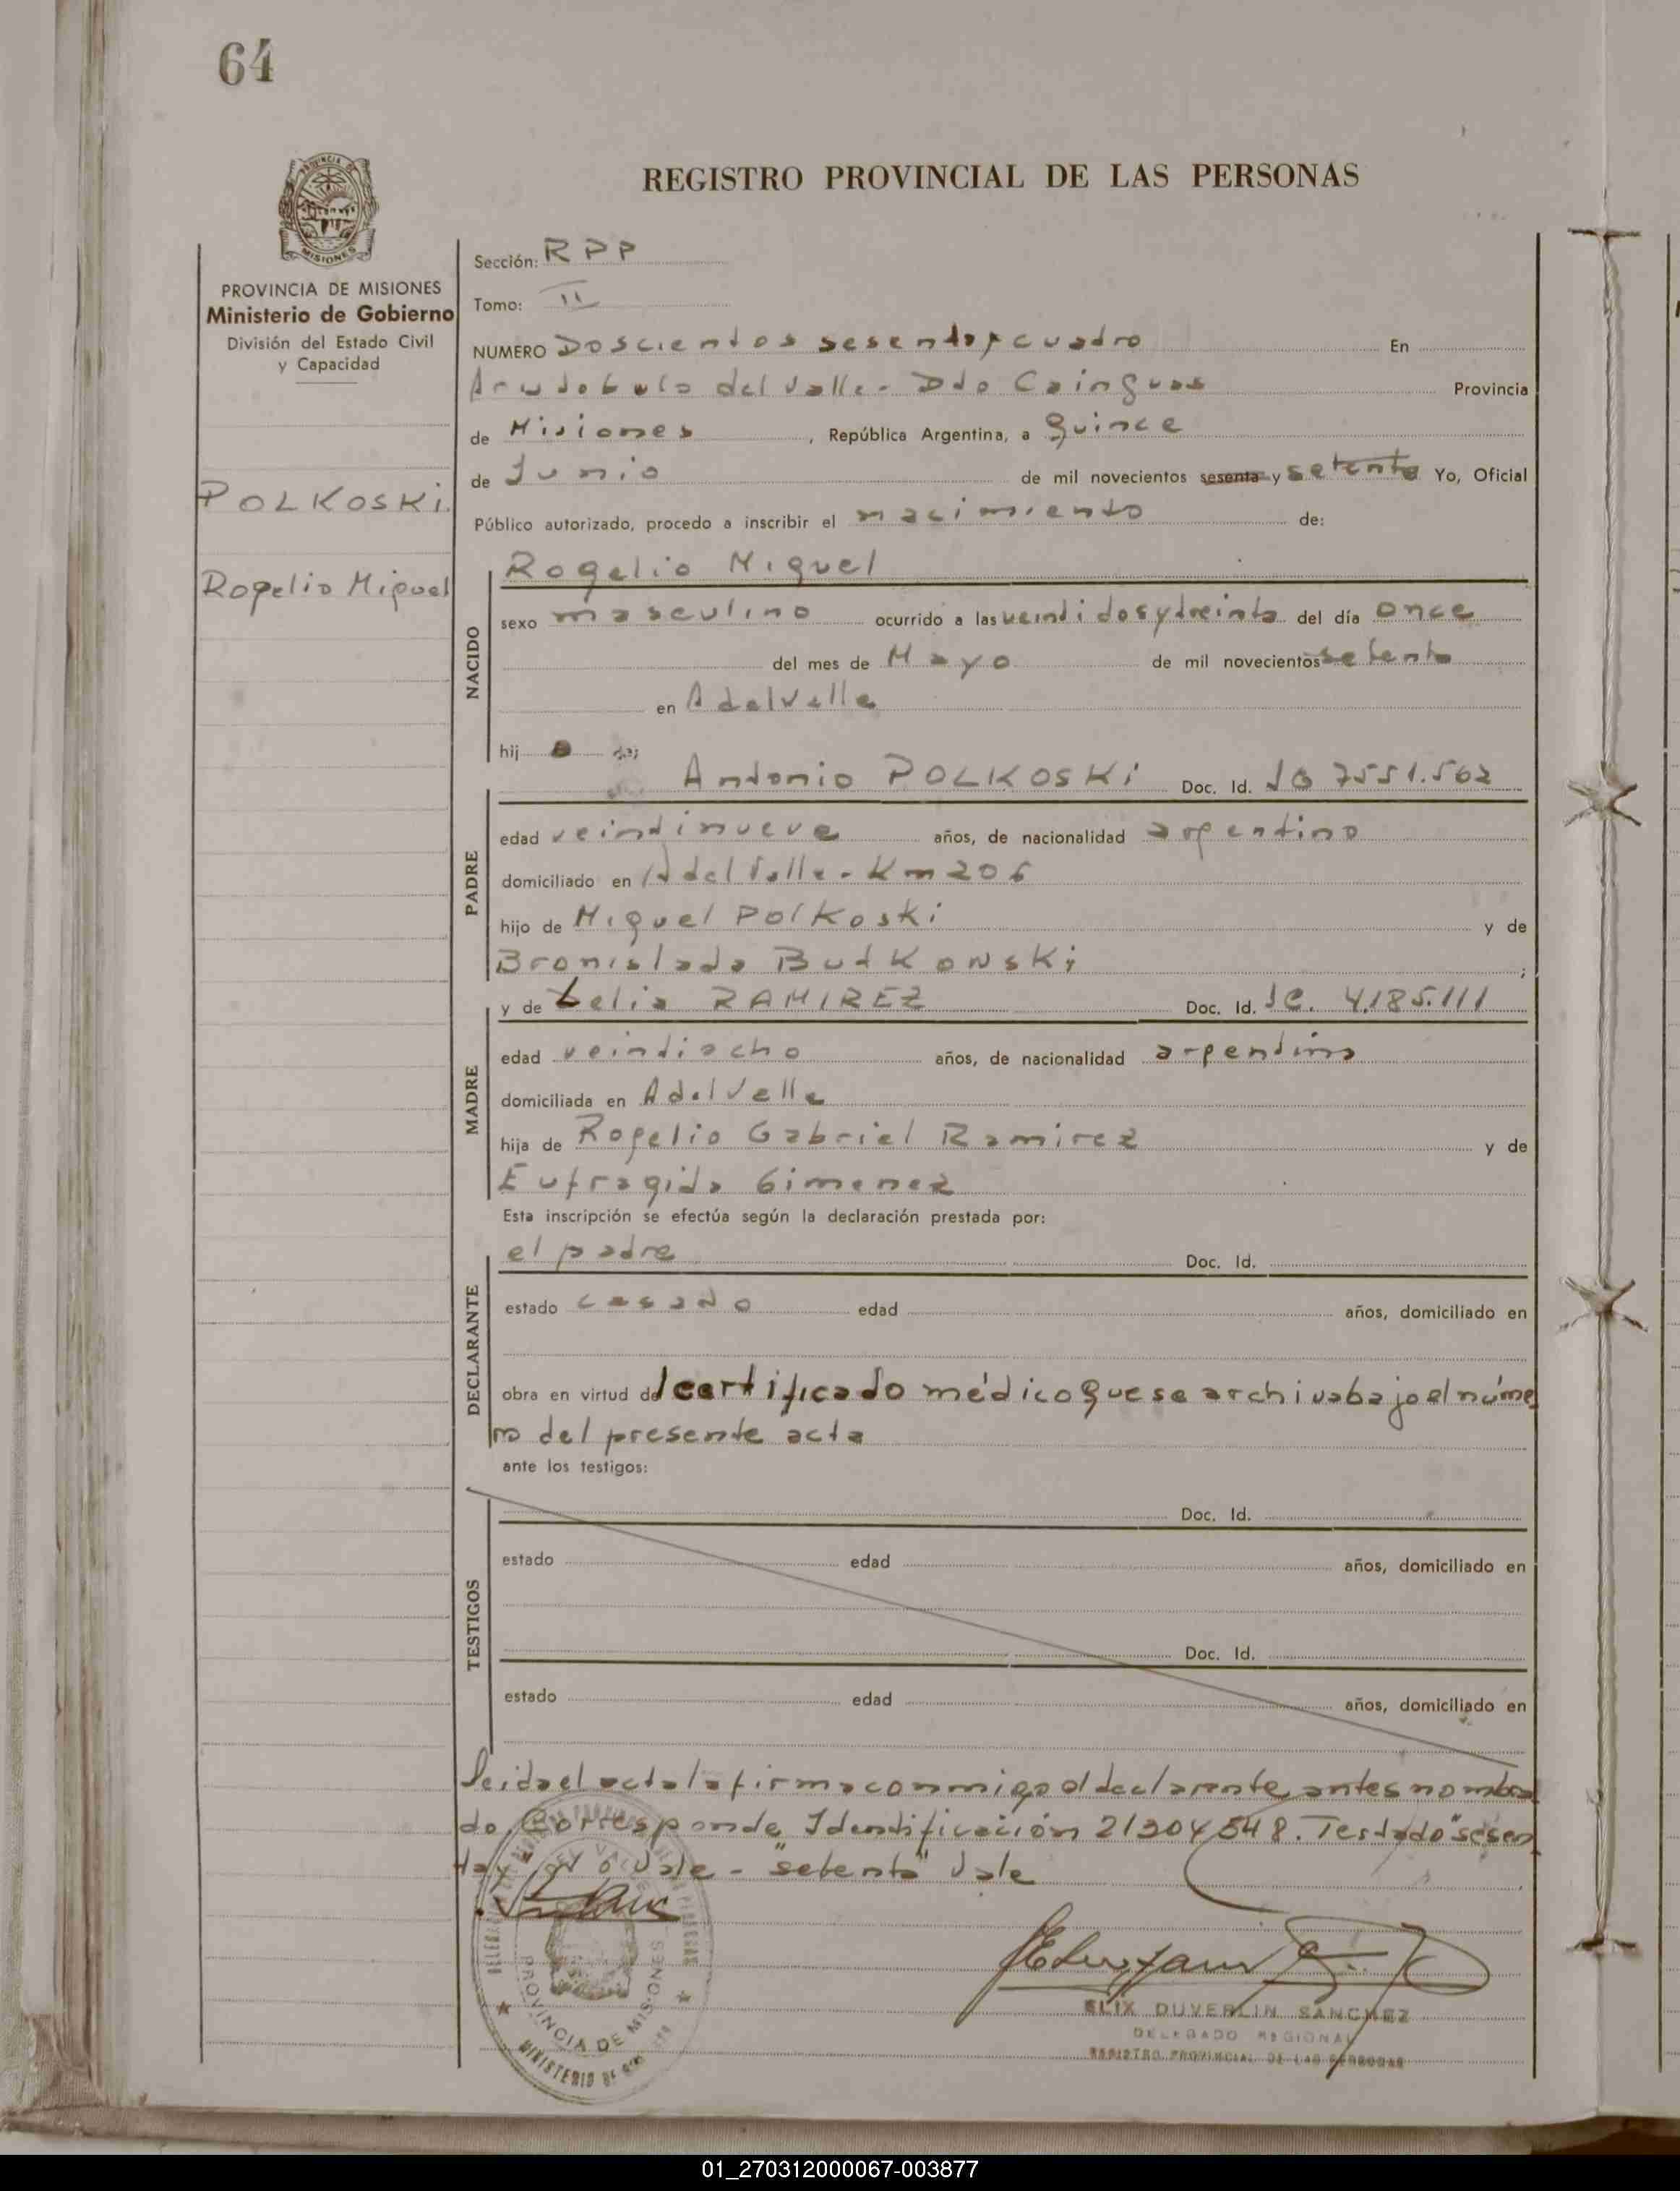 64
REGISTRO PROVINCIAL DE LAS PERSONAS
PROVINCIA DE
MISIONES
PROVINCIA DE MISIONES
Ministerio de Gobierno
División del Estado Civil
y Capacidad
POLKOSKi
Rogelio Miguel
Sección: RPP
Tomo: II
NUMERO Doscientos sesenta y cuatro En
Aristobulo del Valle - Dto Cainguas Provincia
de Misiones, República Argentina, a quince
de Junio de mil novecientos sesenta y setenta Yo, Oficial
Público autorizado, procedo a inscribir el nacimiento de:
NACIDO
Rogelio Miguel
sexo masculino ocurrido a las veintidos y treinta del día once
del mes de Mayo de mil novecientos setenta
en A del Valle
hij o de;
PADRE
Antonio POLKOSKi Doc. Id. 7551.562
edad veintinueve años, de nacionalidad argentino
domiciliado en A del Valle - Km 206
hijo de Miguel Polkoski y de
Bronislada Butkowski;
MADRE
y de Lelia RAMIREZ Doc. Id. 4.185.111
edad veintiocho años, de nacionalidad argentina
domiciliada en A del Valle
hija de Rogelio Gabriel Ramirez y de
Eufragida Gimenez
Esta inscripción se efectúa según la declaración prestada por:
DECLARANTE
el padre Doc. Id.
estado casado edad años, domiciliado en
obra en virtud del certificado médico que se archiva bajo el núme
ro del presente acta
ante los testigos:
TESTIGOS
Doc. Id.
estado edad años, domiciliado en
Doc. Id.
estado edad años, domiciliado en
Leida el acta la firma conmigo el declarante antes nombra
do. Corresponde Identificación 21304548. Testado "sesen
ta y o vale - "setenta" Vale
PROVINCIA DE MISIONES
MINISTERIO DE
ELIX DUVERLIN SANCHEZ
DELEGADO REGIONAL
REGISTRO PROVINCIAL DE LAS PERSONAS
01_270312000067-003877